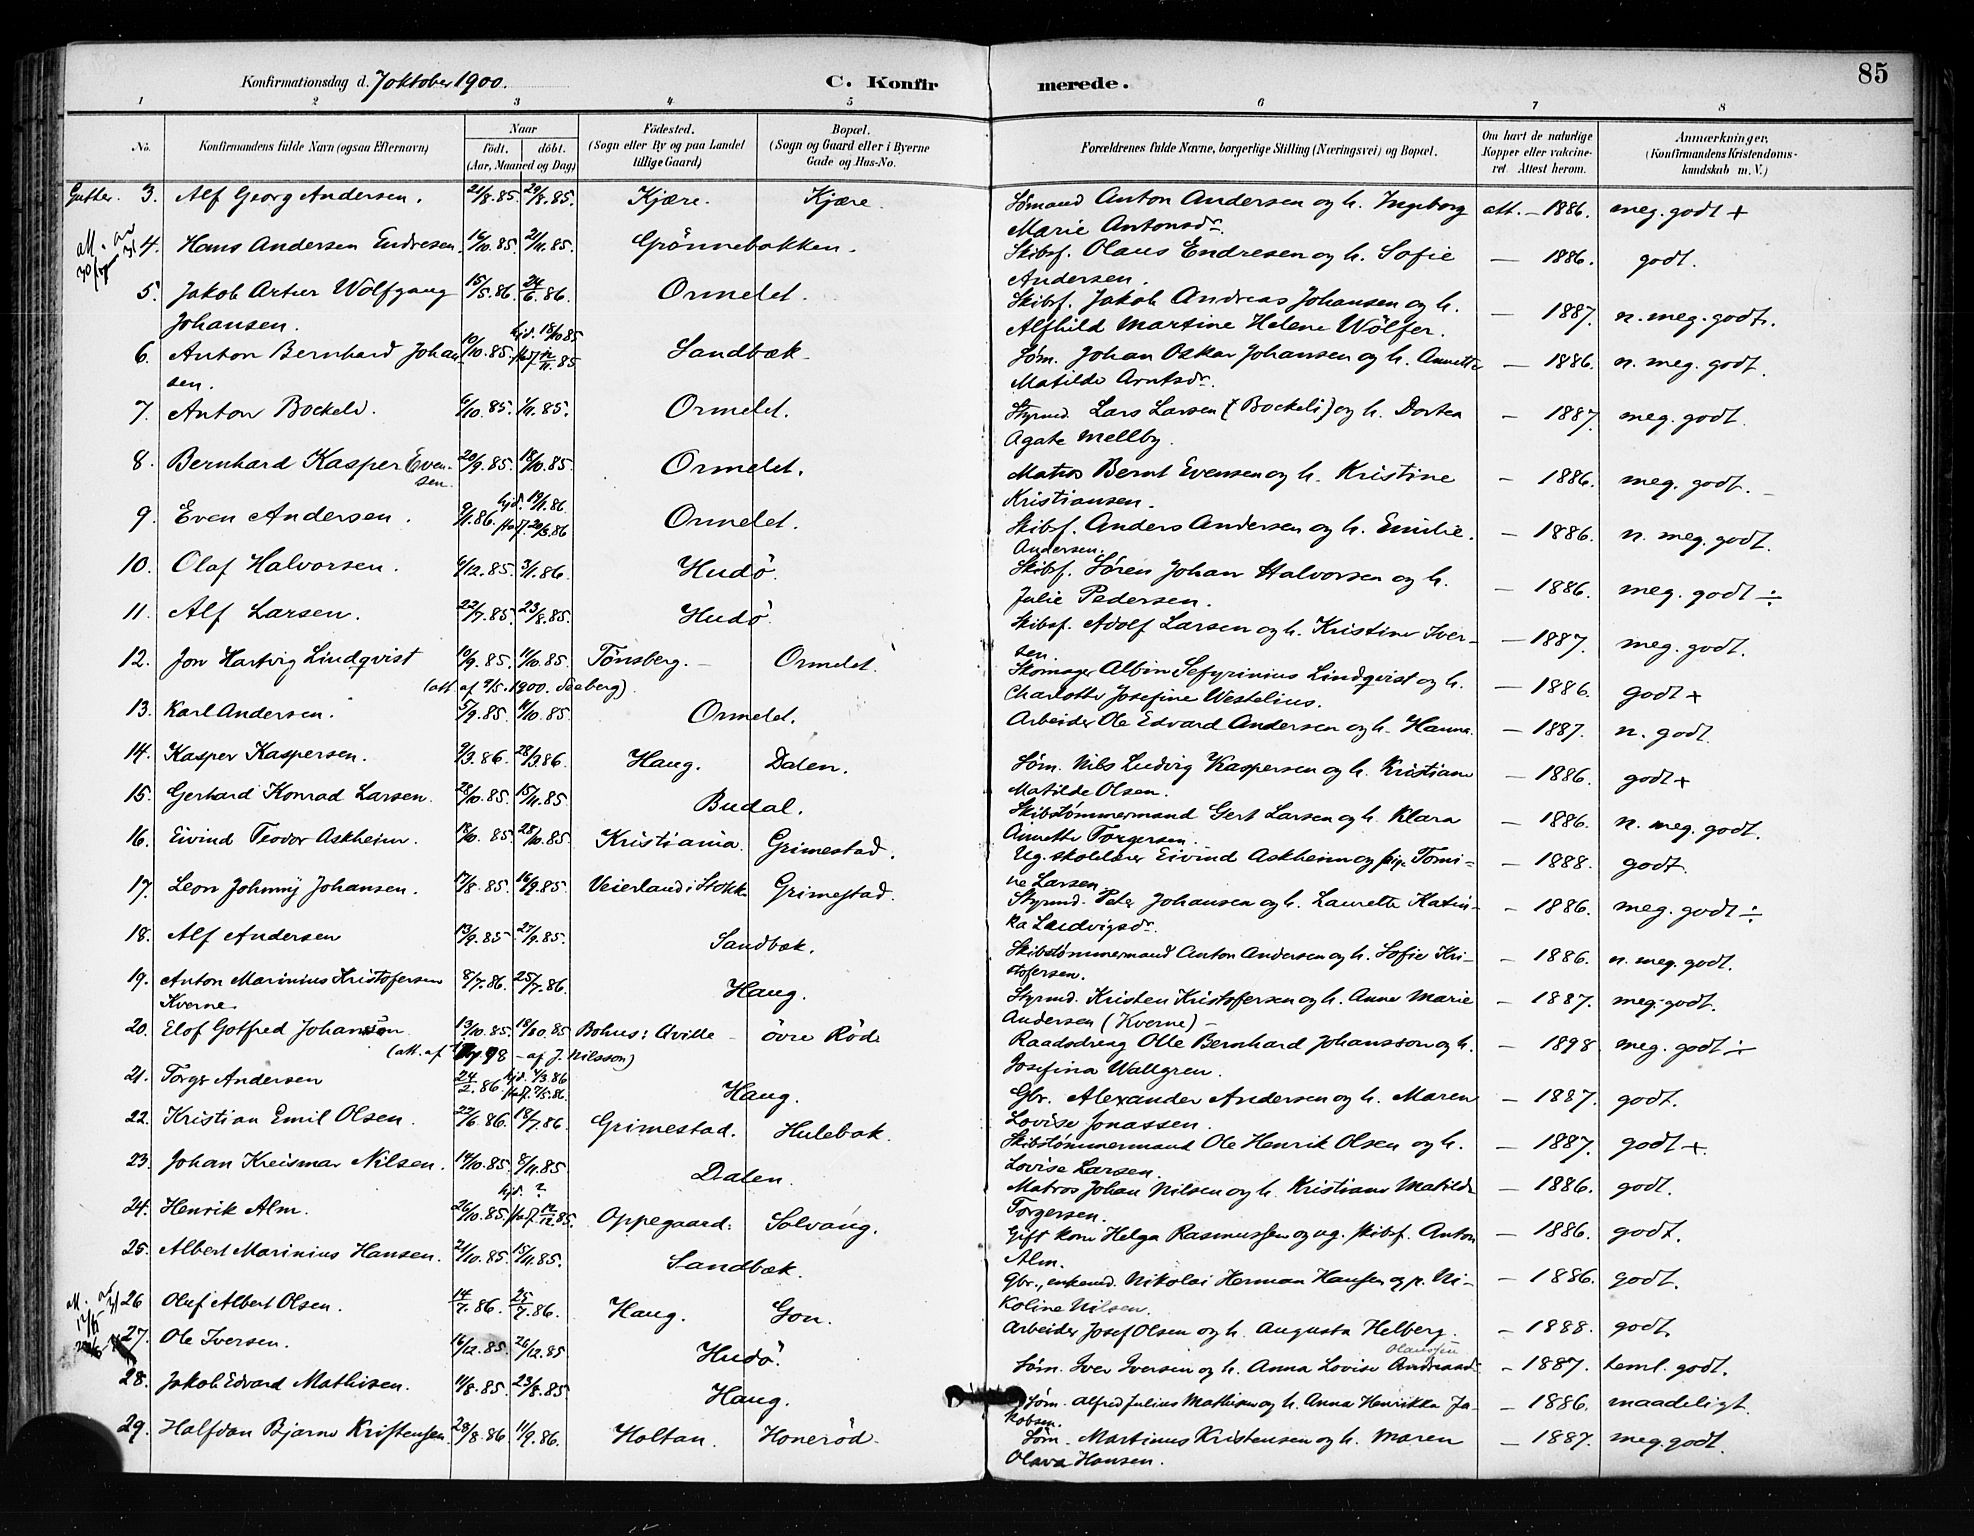 85
Konfirmationsdag d. 7 oktober 1900. C. Konfirmerede.
1 2 3 4 5 6 7 8
No. Konfirmandens fulde Navn (ogsaa Efternavn) Naar født. døbt. (Aar, Maaned og Dag) Fødested. (Sogn eller By og paa Landet tillige Gaard) Bopæl. (Sogn og Gaard eller i Byerne Gade og Hus-No. Forældrenes fulde Navne, borgerlige Stilling (Næringsvei) og Bopæl. Om havt de naturlige Kopper eller vakcineret. Attest herom. Anmærkninger, (Konfirmandens Kristendomskundskab m. V.)
Gutter. 3. Alf Georg Andersen. 21/8.85. 29/8.85. Kjære. Kjære. Sømand Anton Andersen og h. Ingeborg att. - 1886. meg. godt +
Marie Antonsdr.
4. Hans Andersen Endresen. 16/10.85. 21/11.85. Grønnebakken. Skibsf. Olaus Endresen og h. Sofie — 1886. godt.
Andersen.
5. Jakob Artur Wolfgang 15/5.86. 24/6.86. Ormelet. Skibsf. Jakob Andreas Johansen og h. — 1887. n. meg. godt.
Johansen. Alfhild Martine Helene Wölfer.
6. Anton Bernhard Johan- 10/10.85. hjd. 18/10 85 Sandbæk. Søm. Johan Oskar Johansen og h. Annette — 1886. n. meg. godt.
sen. Matilde Arntsdr.
7. Anton Bockeli. 6/10.85. 1/11.85. Ormelet. Styrmd. Lars Larsen (Bockeli) og h. Dortea — 1887. meg. godt.
Agate Mellby.
8. Bernhard Kasper Even- 20/9.85. 18/10.85. Ormelet. Matros Bernt Evensen og h. Kristine — 1886. meg. godt.
sen. Kristiansen.
9. Even Andersen. 9/1.86. hjd. 19/1.86. Ormelet. Skibsf. Anders Andersen og h. Emilie — 1886. n. meg. godt.
Andersen.
10. Olaf Halvorsen. 6/12.85. 3/1.86. Hudø. Skibsf. Søren Johan Halvorsen og h. — 1886. meg. godt ÷
Julie Pedersen.
11. Alf Larsen. 22/7.85. 23/8.85. Hudø. Skibsf. Adolf Larsen og h. Kristine Iver- — 1887. meg. godt.
sen.
12. Jon Hartvig Lindqvist 10/9.85. 11/10.85. Tønsberg. — Ormelet. Skomager Albin Sefyrinius Lindqvist og h. — 1886. godt +
(att. af 9/5.1900. Seeberg). Charlotte Josefine Westelius.
13. Karl Andersen. 5/9.85. 4/10.85. Ormelet. Arbeider Ole Edvard Andersen og h. Hanna. — 1887. n. godt.
14. Kasper Kaspersen. 9/3.86. 28/3.86. Haug. Dalen. Søm. Nils Ludvig Kaspersen og h. Kristiane — 1886. godt +
Matilde Olsen.
15. Gerhard Konrad Larsen. 28/10.85. 15/11.85. Budal. Skibstømmermand Gert Larsen og h. Klara — 1886. n. meg. godt.
Annette Torgersen.
16. Eivind Teodor Askheim. 25/10.85. Kristiania. Grimestad. Ug. skolelærer Eivind Askheim og pige Tomi- — 1888. godt.
ne Larsen.
17. Leon Johnny Johansen. 17/8.85. 16/9.85. Veierland i Stokke Grimestad. Styrmd. Peter Johansen og h. Laurette Katin- — 1886. meg. godt ÷
ka Ludvigsdr.
18. Alf Andersen 13/9.85. 27/9.85. Sandbæk. Skibstømmermand Anton Andersen og h. Sofie Kri- — 1886. n. meg. godt.
stofersen.
19. Anton Marinius Kristofersen 8/7.86. 25/7.86. Haug. Styrmd. Kristen Kristofersen og h. Anne Marie — 1887. meg. godt.
Kverne. Andersen (Kverne) —
20. Elof Gotfred Johansson 13/10.85. 19/10.85 Bohus: Qville — øvre Røde Raadsdreng Olle Bernhard Johansson og h. — 1898. meg. godt ÷
(att. af 98 - af J. Nilsson) Josefina Wallgren.
21. Torger Andersen 24/2.86. hjd. 4/3.86 Haug. Gbr. Alexander Andersen og h. Maren — 1887. godt.
Lovise Jonassen.
22. Kristian Emil Olsen. 22/6.86. 18/7.86. Grimestad. Hulebak. Skibstømmermand Ole Henrik Olsen og h. — 1887. godt +
Lovise Larsen.
23. Johan Kreismar Nilsen. 14/10.85. 8/11.85 Dalen. Matros Johan Nilsen og h. Kristiane Matilde — 1886. godt.
Torgersen.
24. Henrik Alm. 26/10.85. hjd. ? Oppegaard. Solvang. Gift kone Helga Rasmussen og ug. skibsf. Anton — 1886. godt.
Alm.
25. Albert Marinius Hansen. 21/10.85. 15/11.85. Sandbæk. Gbr., enkemd. Nikolai Herman Hansen og p. Ni- — 1886. godt.
koline Nilsen.
26 Oluf Albert Olsen. 14/7.86. 25/7.86. Haug. Gon. Arbeider Josef Olsen og h. Augusta Helberg. — 1888. godt.
27. Ole Iversen. 16/12.85. 26/12.85 Hudø. Søm. Iver Iversen og h. Anna Lovise Andreasd. — 1887. teml. godt.
Olaussen
28. Jakob Edvard Mathisen. 11/8.85. 23/8.85. Haug. Søm. Alfred Julius Mathisen og h. Anna Henrikka Ja- — 1886. maadeligt.
kobsen.
29. Halfdan Bjarne Kristensen 28/8.86 11/9.86. Holtan. Honerød. Søm. Martinus Kristensen og h. Maren — 1887. meg. godt.
Olava Hansen.